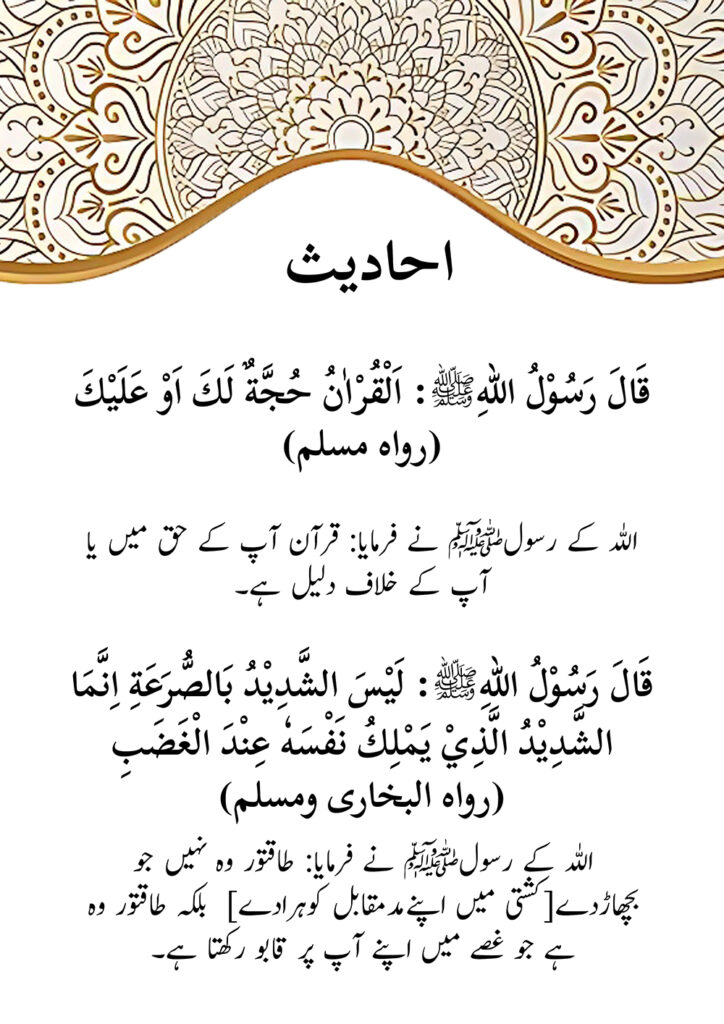 احادیث
قَالَ رَسُوْلُ اللهِﷺ: اَلْقُرْاٰنُ حُجَّةٌ لَكَ اَوْ عَلَيْكَ
(رواه مسلم)
اللہ کے رسولﷺ نے فرمایا: قرآن آپ کے حق میں یا
آپ کے خلاف دلیل ہے۔
قَالَ رَسُوْلُ اللهِﷺ: لَيْسَ الشَّدِيْدُ بَالصُّرَعَةِ اِنَّمَا
الشَّدِيْدُ الَّذِيْ يَمْلِكُ نَفْسَهٗ عِنْدَ الْغَضَبِ
(رواه البخاری ومسلم)
اللہ کے رسولﷺ نے فرمایا: طاقتور وہ نہیں جو
بچھاڑدے[کشتی میں اپنےمدمقابل کوہرادے] بلکہ طاقتور وہ
ہے جو غصے میں اپنے آپ پر قابو رکھتا ہے۔